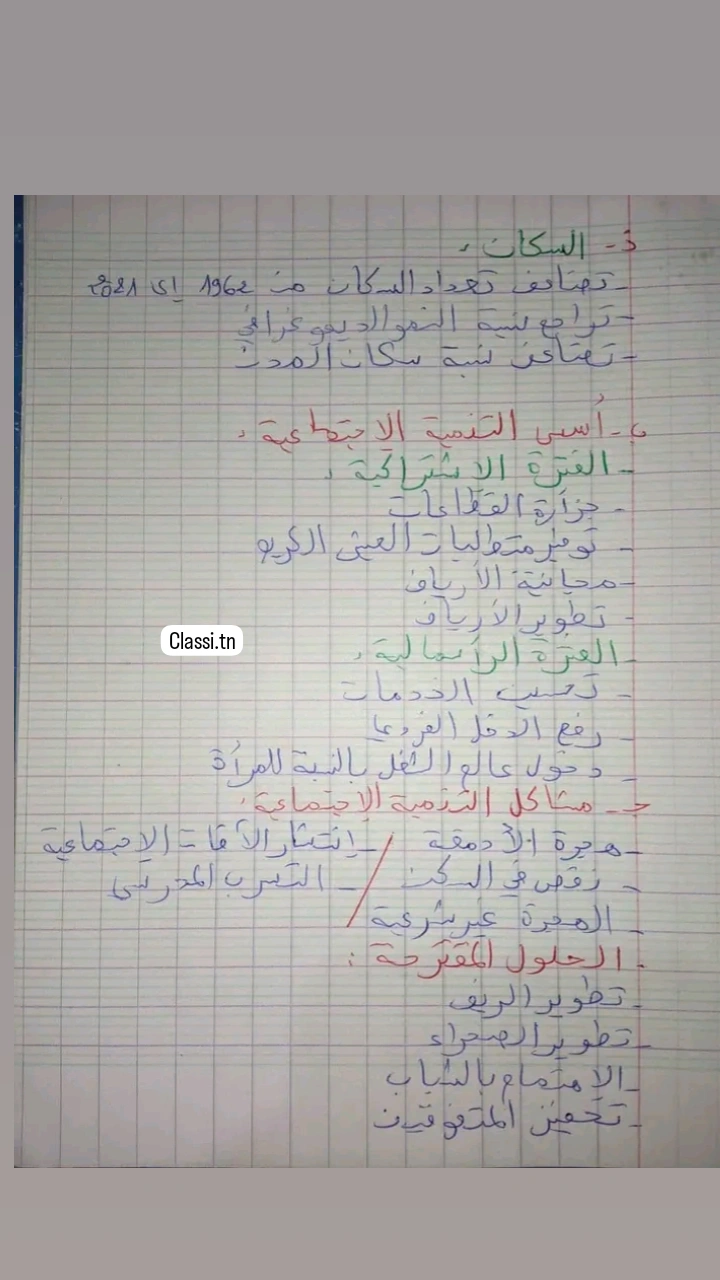 3- السكان:
- تضاعف تعداد السكان من 1962 إلى 2021
- تراجع نسبة النمو الديموغرافي
- تضاعف نسبة سكان المدن
ب- أسس التنمية الاجتماعية:
- الفترة الاشتراكية:
- جزأرة القطاعات
- توفير متطلبات العيش الكريم
- مجانية الأرياف
- تطوير الأرياف
Classi.tn
- الفترة الرأسمالية:
- تحسين الخدمات
- رفع الدخل الفردي
- دخول عالم الشغل بالنسبة للمرأة
ج- مشاكل التنمية الاجتماعية:
- هجرة الأدمغة / - انتشار الآفات الاجتماعية
- نقص في السكن / - التسرب المدرسي
- الهجرة غير شرعية
. الحلول المقترحة:
- تطوير الريف
- تطوير الصحراء
- الاهتمام بالشباب
- تحفيز المتفوقين